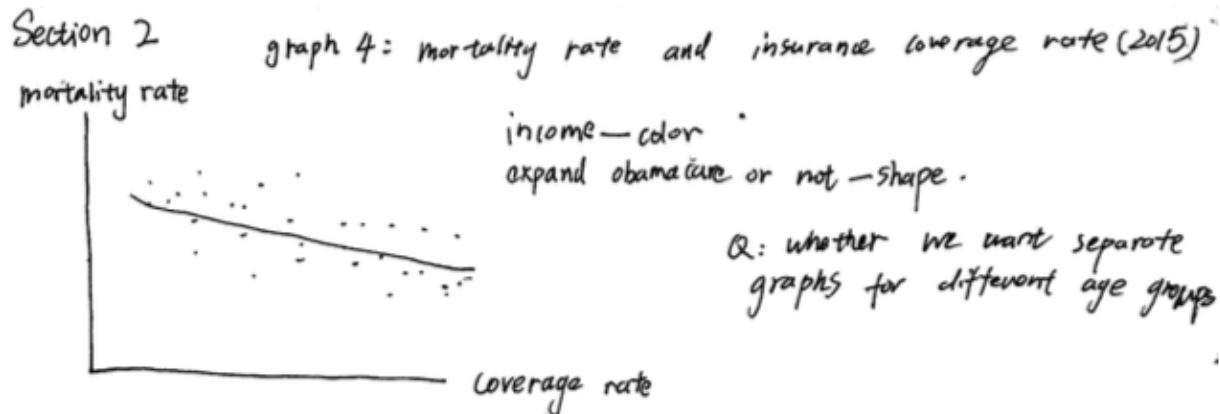 Section 2
graph 4: mortality rate and insurance coverage rate (2015)
mortality rate
income — color
expand obamacare or not — shape.
Q: whether we want separate
graphs for different age groups
coverage rate